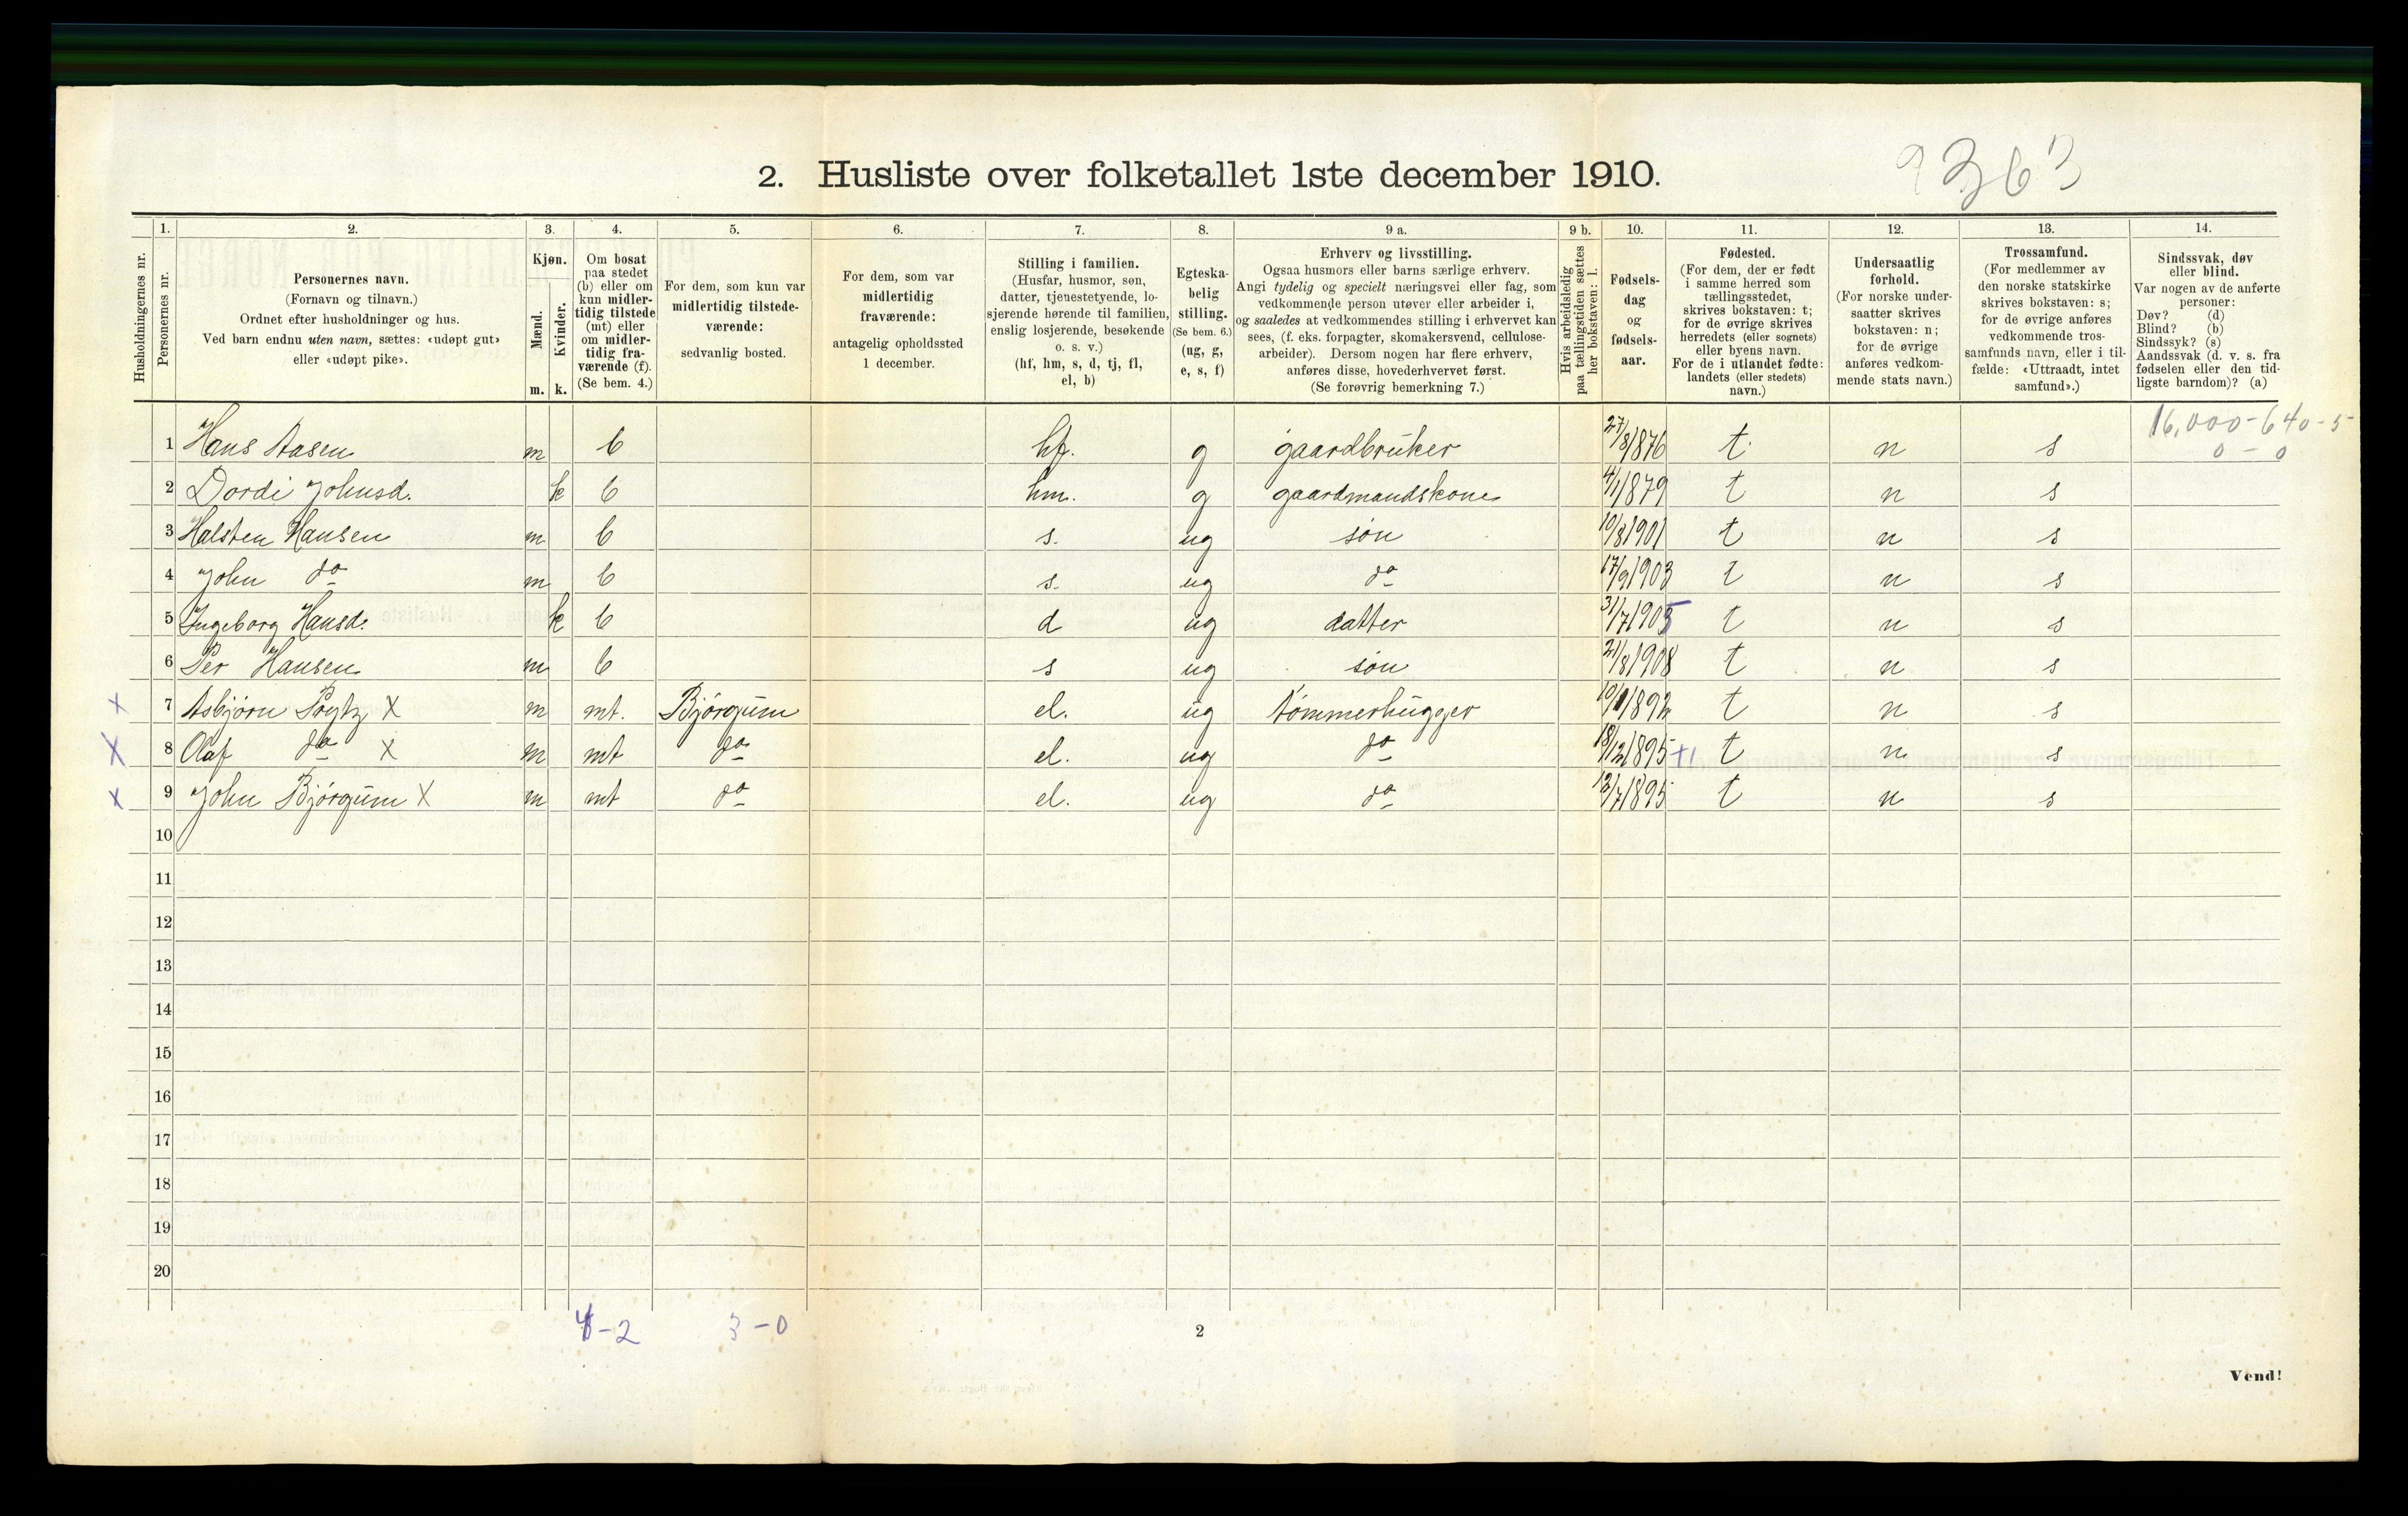 9363
2. Husliste over folketallet 1ste december 1910.
Husholdningernes nr.
1. Personernes nr.
2. Personernes navn.
(Fornavn og tilnavn.)
Ordnet efter husholdninger og hus.
Ved barn endnu uten navn, sættes: «udøpt gut»
eller «udøpt pike».
3. Kjøn.
Mænd. m.
Kvinder. k.
4. Om bosat
paa stedet
(b) eller om
kun midler-
tidig tilstede
(mt) eller
om midler-
tidig fra-
værende (f).
(Se bem. 4.)
5. For dem, som kun var
midlertidig tilstede-
værende:
sedvanlig bosted.
6. For dem, som var
midlertidig
fraværende:
antagelig opholdssted
1 december.
7. Stilling i familien.
(Husfar, husmor, søn,
datter, tjenestetyende, lo-
sjerende hørende til familien,
enslig losjerende, besøkende
o. s. v.)
(hf, hm, s, d, tj, fl,
el, b)
8. Egteska-
belig
stilling.
(Se bem. 6.)
(ug, g,
e, s, f)
9 a. Erhverv og livsstilling.
Ogsaa husmors eller barns særlige erhverv.
Angi tydelig og specielt næringsvei eller fag, som
vedkommende person utøver eller arbeider i,
og saaledes at vedkommendes stilling i erhvervet kan
sees, (f. eks. forpagter, skomakersvend, cellulose-
arbeider). Dersom nogen har flere erhverv,
anføres disse, hovederhvervet først.
(Se forøvrig bemerkning 7.)
9 b. Hvis arbeidsledig
paa tællingstiden sættes
her bokstaven: l.
10. Fødsels-
dag
og
fødsels-
aar.
11. Fødested.
(For dem, der er født
i samme herred som
tællingsstedet,
skrives bokstaven: t;
for de øvrige skrives
herredets (eller sognets)
eller byens navn.
For de i utlandet fødte:
landets (eller stedets)
navn.)
12. Undersaatlig
forhold.
(For norske under-
saatter skrives
bokstaven: n;
for de øvrige
anføres vedkom-
mende stats navn.)
13. Trossamfund.
(For medlemmer av
den norske statskirke
skrives bokstaven: s;
for de øvrige anføres
vedkommende tros-
samfunds navn, eller i til-
fælde: «Uttraadt, intet
samfund».)
14. Sindssvak, døv
eller blind.
Var nogen av de anførte
personer:
Døv? (d)
Blind? (b)
Sindssyk? (s)
Aandssvak (d. v. s. fra
fødselen eller den tid-
ligste barndom)? (a)
16,000-640-5
0 - 0
1 Hans Aasen m b hf. g gaardbruker 27/8/876 t. n s
2 Dordi Johnsd. k b hm. g gaardmandskone 4/1/879 t n s
3 Halsten Hansen m b s. ug søn 10/8/901 t n s
4 John do m b s. ug do 17/9/903 t n s
5 Ingeborg Hansd. k b d ug datter 31/7/905 t n s
6 Per Hansen m b s ug søn 21/8/908 t n s
X 7 Asbjørn X m mt. Bjørgum el. ug tømmerhugger 10/1/892 t n s
X 8 Olaf do X m mt do el. ug do 18/12/895 +1 t n s
X 9 John Bjørgum X m mt do el. ug do 13/7/895 t n s
10
11
12
13
14
15
16
17
18
19
20
4-2 3-0
2
Vend!